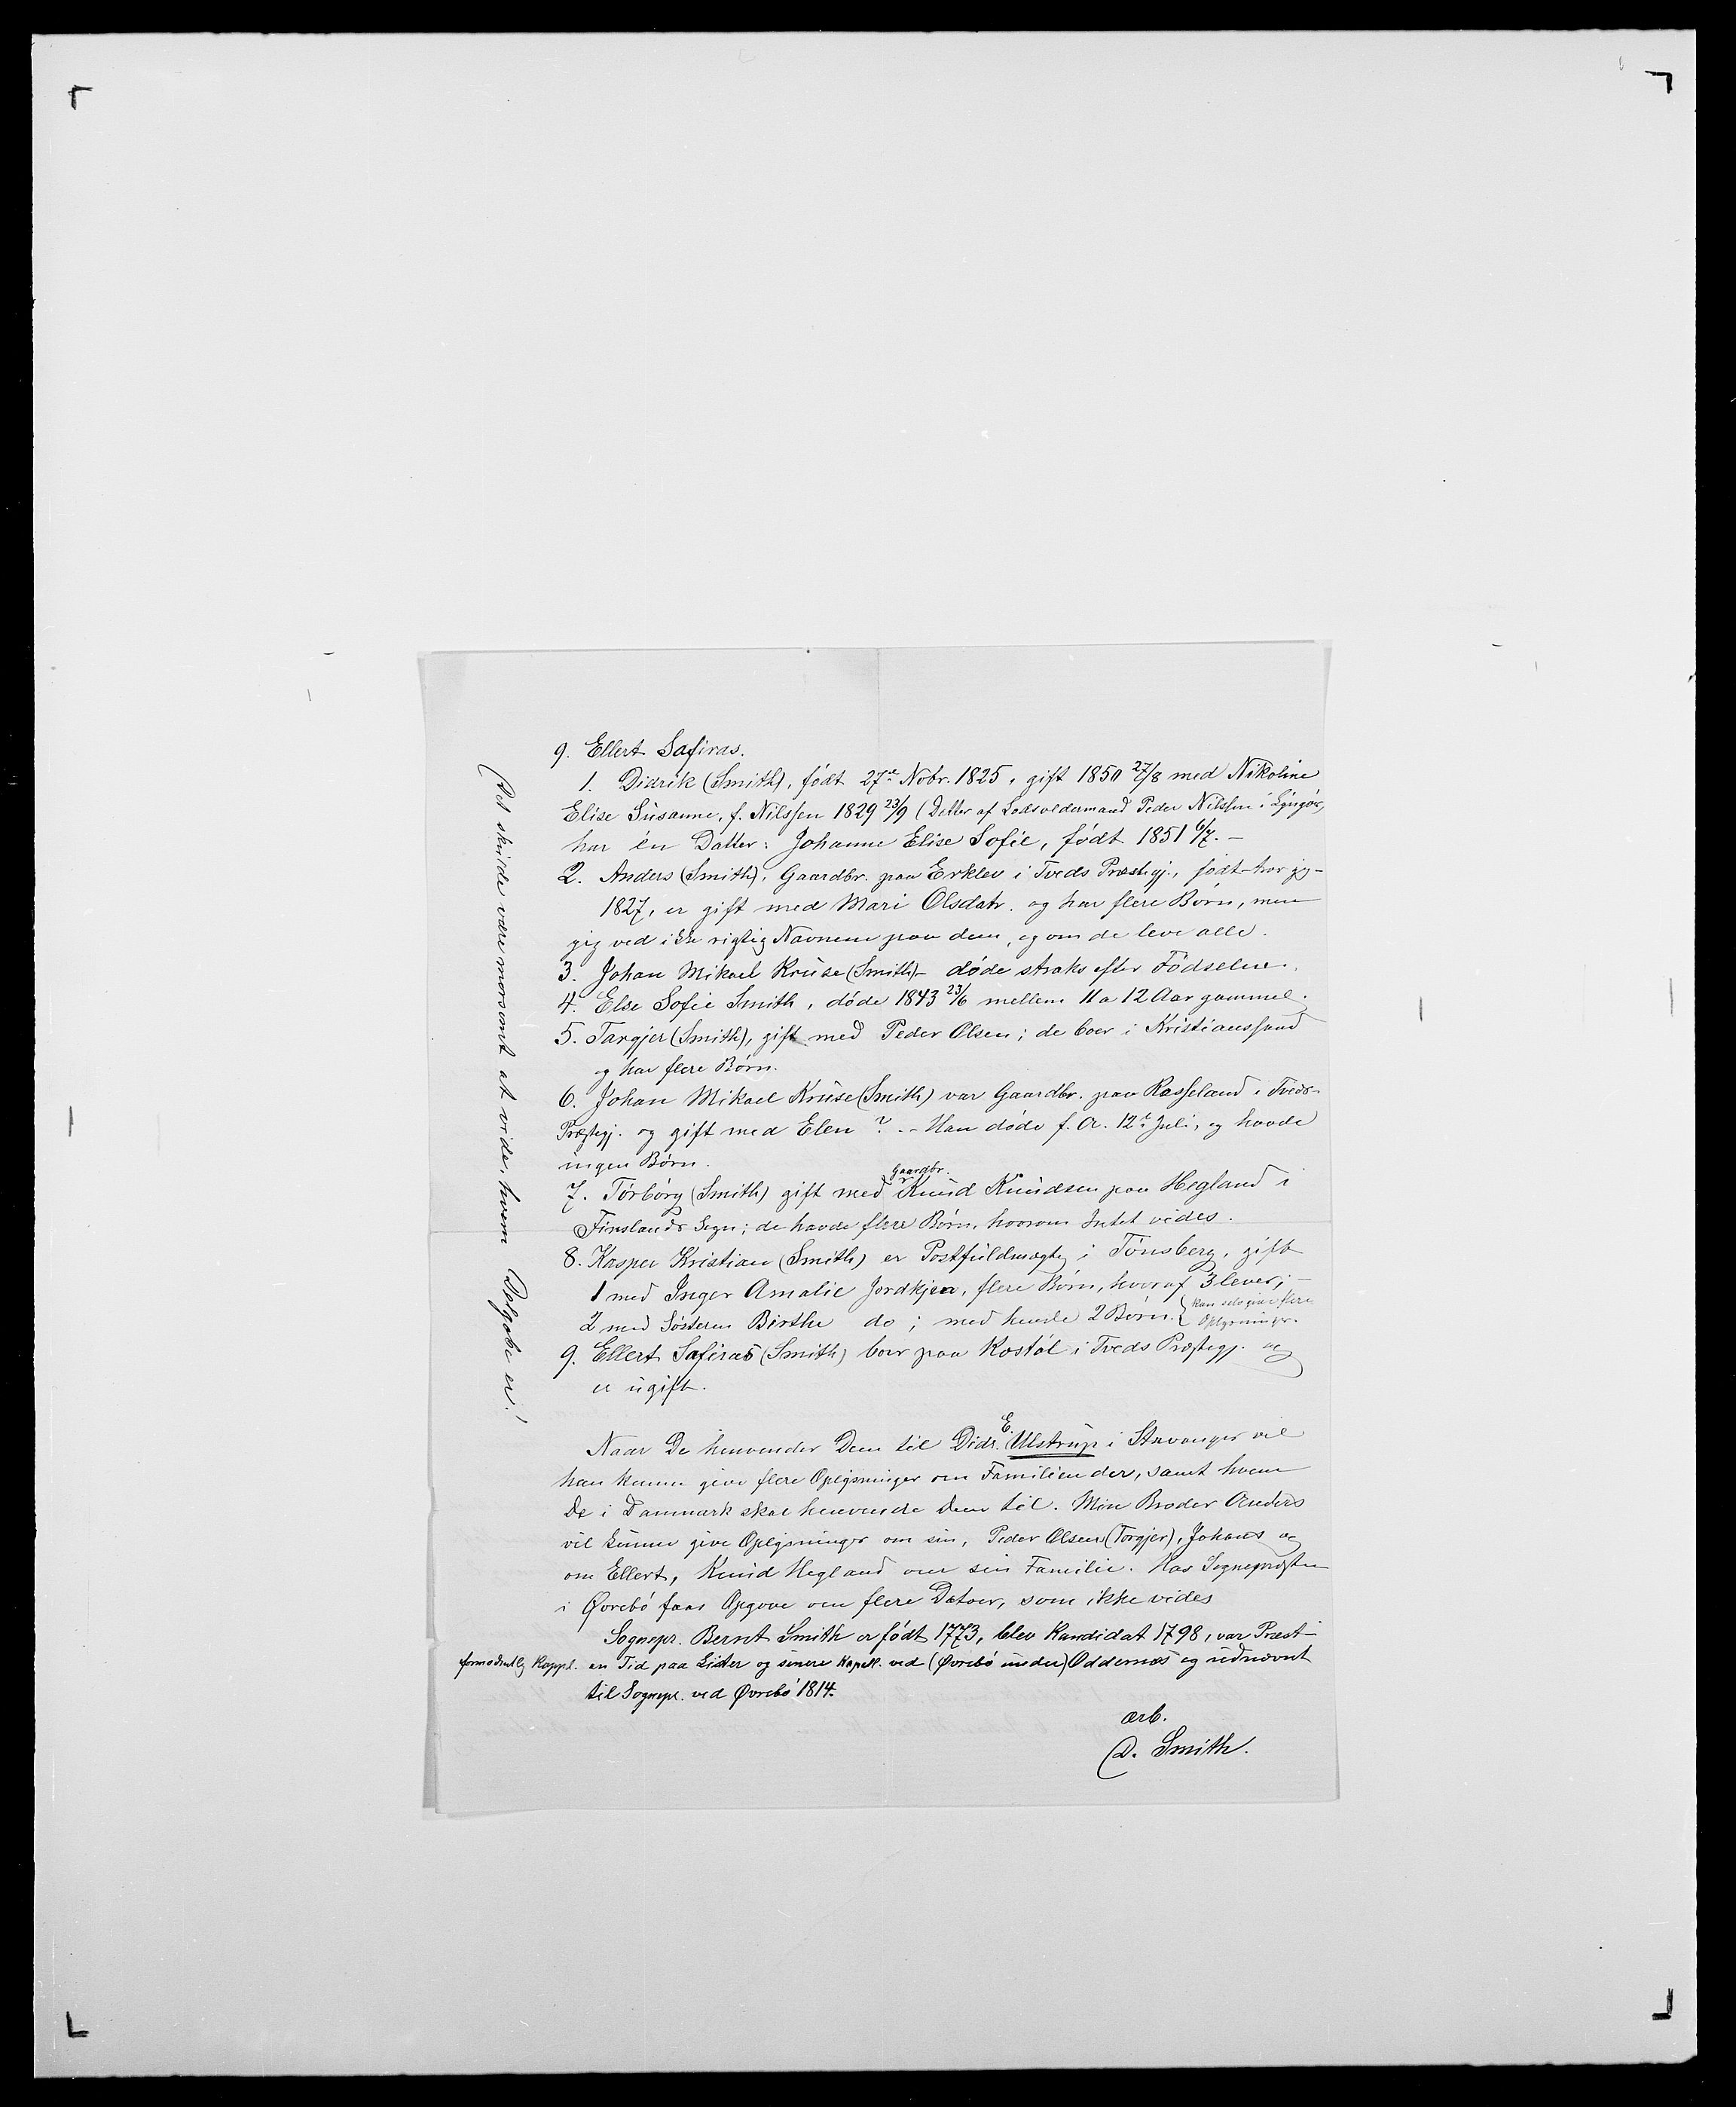 9. Ellert Safiras.
1. Didrik (Smith), født 27de Nobr. 1825, gift 1850 27/8 med Nikoline
Elise Susanne, f. Nilssen 1829 23/9 (Datter af Lodsoldermand Peder Nilssen i Lyngør,
har én Datter: Johanne Elise Sofie, født 1851 6/7. –
2. Anders (Smith), Gaardbr. paa Erklev i Tveds Præstegj., født – tror jeg –
1827, er gift med Mari Olsdatr. og har flere Børn, men
jeg ved ikke rigtig Navnene paa dem, og om de leve alle.
3. Johan Mikael Kruse (Smith) – døde straks efter Fødselen.
4. Else Sofie Smith, døde 1843 23/6 mellem 11 a 12 Aar gammel.
5. Targjer (Smith), gift med Peder Olsen; de boer i Kristianssund
og har flere Børn.
6. Johan Mikael Kruse (Smith) var Gaardbr. paa Rasseland i Tveds
Præstegj. og gift med Elen ? – Han døde f. A. 12te Juli, og havde
ingen Børn.
7. Torborg (Smith) gift med Gaardbr. Knud Knudsen paa Hegland i
Finslands Sogn; de havde flere Børn, hvorom Intet vides.
8. Kasper Kristian (Smith) er Postfuldmægtig i Tønsberg, gift
1 med Inger Amalie Jordkjen, flere Børn, hvoraf 3 lever; –
2 med Søsteren Birthe do; med hende 2 Børn. { kan selv give flere
Oplysninger.
9. Ellert Safiras (Smith) boer paa Kostøl i Tveds Præstegj. og
er ugift.
Naar De henvender Dem til Didr. E. Ulstrup i Stavanger vil
han kunne give flere Oplysninger om Familien der, samt hvem
De i Danmark skal henvende Dem til. Min Broder Anders
vil kunne give Oplysninger om sin, Peder Olsens (Torgjer), Johans og
om Ellert, Knud Hegland om sin Familie. Hos Sognepræsten
i Øvrebø faaes Opgave om flere Datoer, som ikke vides
Sognepr. Bernt Smith er født 1773, blev Kandidat 1798, var Præst –
formodentlig Kappel. en Tid paa Lister og senere Kapell. ved (Øvrebø under) Oddernæs og udnævnt
til Sognepr. ved Øvrebø 1814.
ærb.
D. Smith.
(Det skulde være morsomt at vide, hvem Dolgobe er!